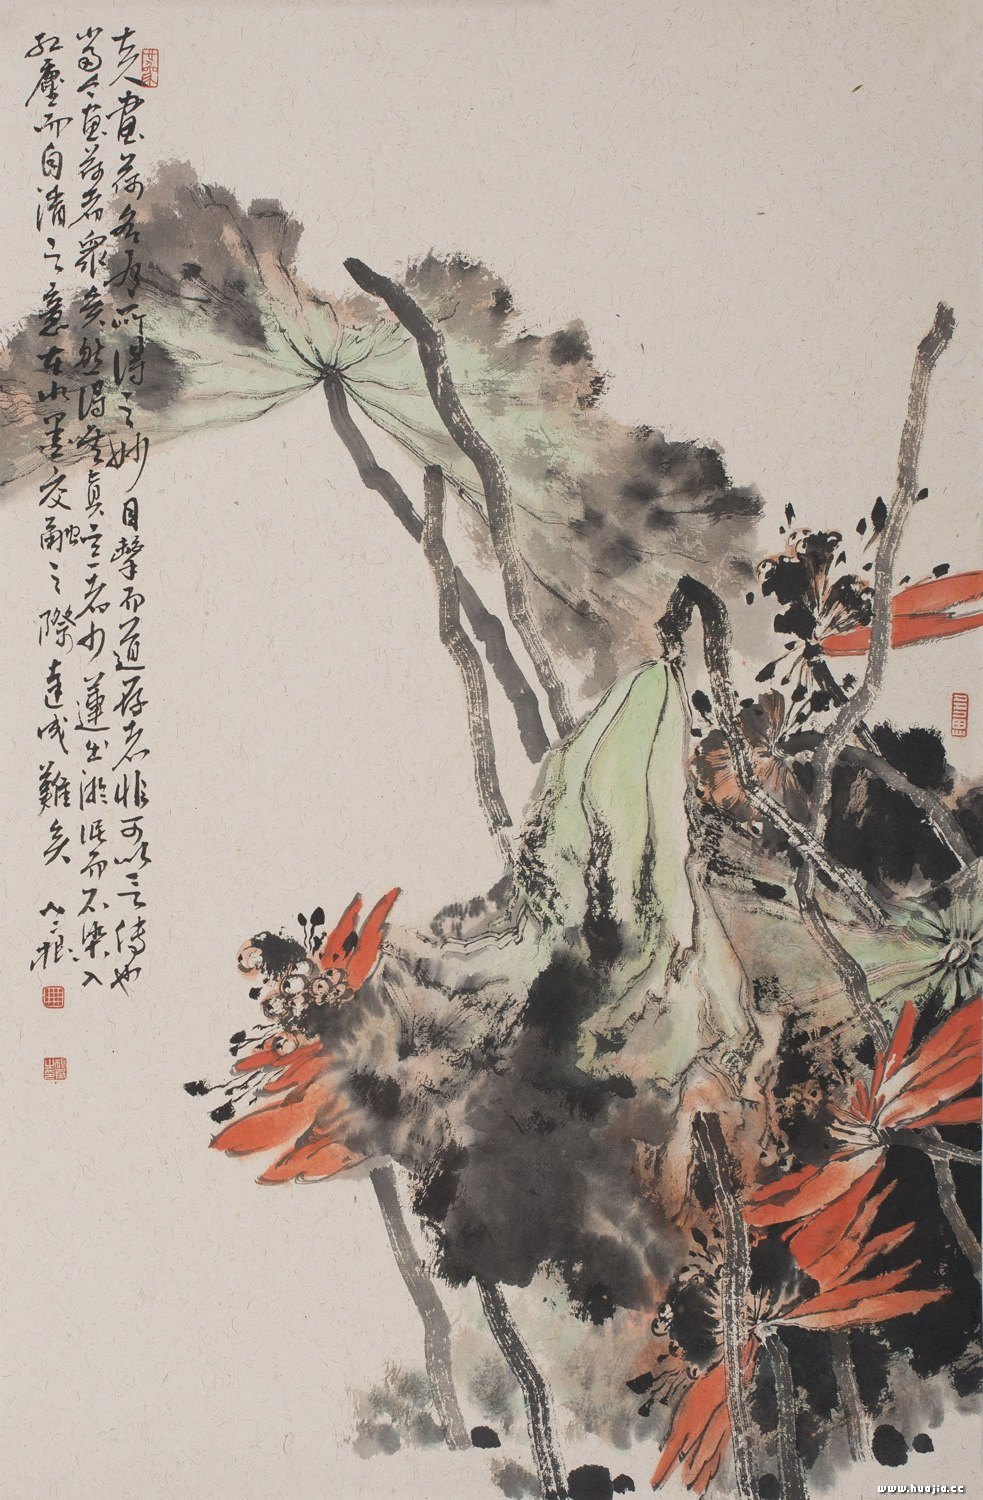 夫畫荷各有所得之妙目擊而道存者非可以言傳也
當今畫荷者眾矣然得其真意者少蓮出淤泥而不染入
紅塵而自清之意在水墨交融之際達成難矣
www.huajia.cc